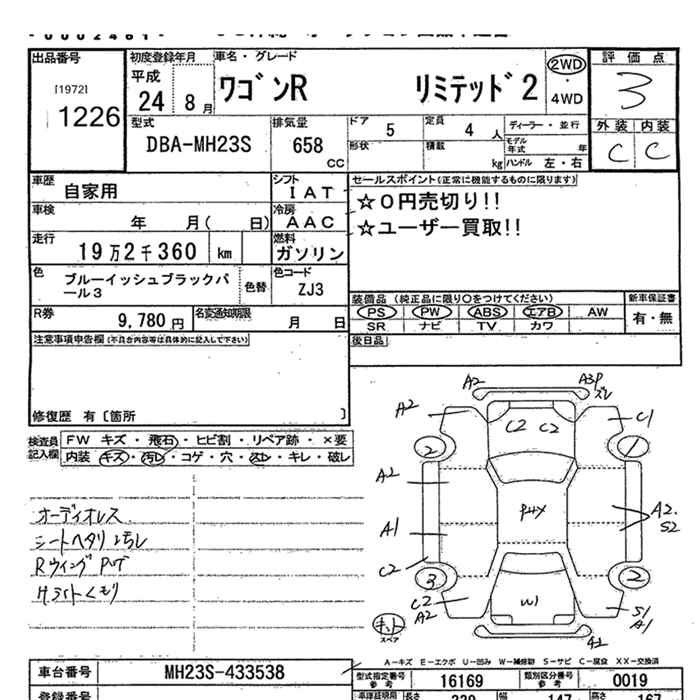 出品番号
[1972]
1226
初度登録年月
平成
24 8月
車名・グレード
ワゴンR リミテッド2
2WD
・
4WD
評価点
3
外装 内装
C C
型式
DBA-MH23S
排気量
658
CC
ドア
5
定員
4人
ディーラー・並行
形状
積載
kg
モデル年式
年
ハンドル 左・右
車歴
自家用
シフト
IAT
車検
年 月( 日)
冷房
AAC
走行
19万2千360 km
燃料
ガソリン
色
ブルーイッシュブラックパール3
色替
色コード
ZJ3
R券
9,780円
名変通知期限
月 日
セールスポイント(正常に機能するものに限ります)
☆0円売切り!!
☆ユーザー買取!!
装備品 (純正品に限り○をつけてください)
PS PW ABS エアB AW
SR ナビ TV カワ
新車保証書
有・無
後日品
注意事項申告欄(不具合内容等は具体的に記入して下さい)
修復歴 有[箇所 ]
検査員記入欄
FW キズ・飛石・ヒビ割・リペア跡・×要
内装 キズ・汚レ・コゲ・穴・スレ・キレ・破レ
オーディオレス
シートヘタリ
Rウイング
くもり
A2
A3P
ズレ
A2
C1
C2 C2
2
1
A2
A2.
S2
A1
C2
3
2
C2
A2
W1
S1
A1
キット
スペア
A-キズ E-エクボ U-凹み W-補修跡 S-サビ C-腐食 XX-交換済
車台番号
MH23S-433538
型式指定番号
参考
16169
類別区分番号
参考
0019
登録番号
長さ
339
幅
147
高さ
167